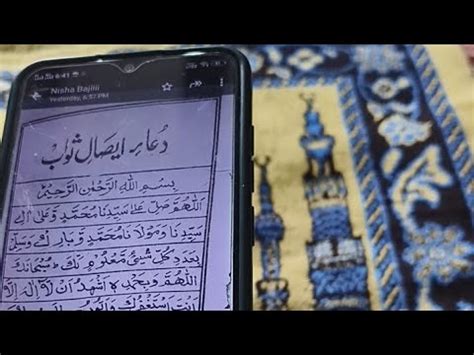 6:41
Nisha Bajiii
Yesterday, 6:57 PM
دعائے ایصال ثواب
بِسْمِ اللهِ الرَّحْمٰنِ الرَّحِيْمِ
اَللّٰهُمَّ صَلِّ عَلٰى سَيِّدِنَا مُحَمَّدٍ وَّ عَلٰى اٰلِ
سَيِّدِنَا وَمَوْلَانَا مُحَمَّدٍ وَّ بَارِكْ وَسَلِّمْ
بِعَدَدِ كُلِّ شَيْءٍ مَّعْلُوْمٍ لَّكَ سُبْحَانَكَ
اَللّٰهُمَّ وَبِحَمْدِكَ اَشْهَدُ اَنْ لَّا اِلٰهَ اِلَّا
اَنْتَ اَسْتَغْفِرُكَ وَاَتُوْبُ